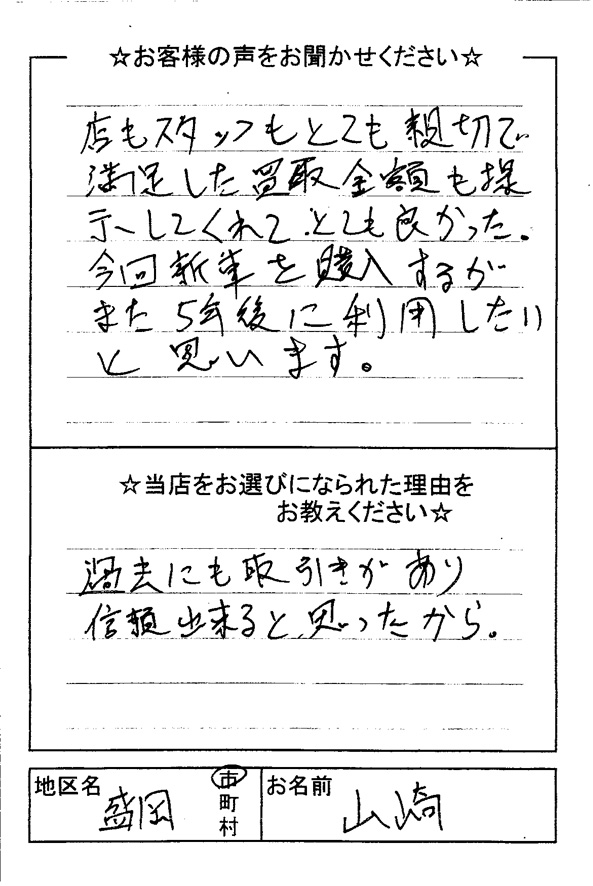 ☆お客様の声をお聞かせください☆
店もスタッフもとても親切で
満足した買取金額も提
示してくれて、とても良かった。
今回新車を購入するが
また5年後に利用したい
と思います。
☆当店をお選びになられた理由を
お教えください☆
過去にも取引きがあり
信頼出来ると思ったから。
地区名 盛岡 市町村 お名前 山崎